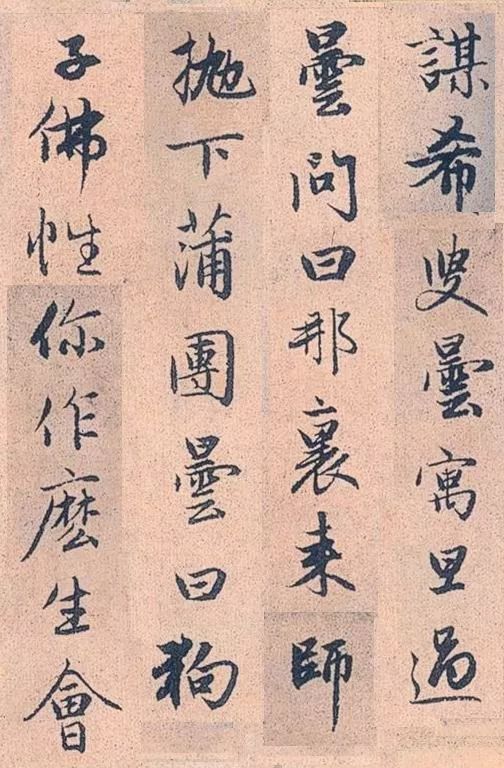 謀希叟曇寓旦過
曇問曰那裏来師
拋下蒲團曇曰狗
子佛性你作麽生會